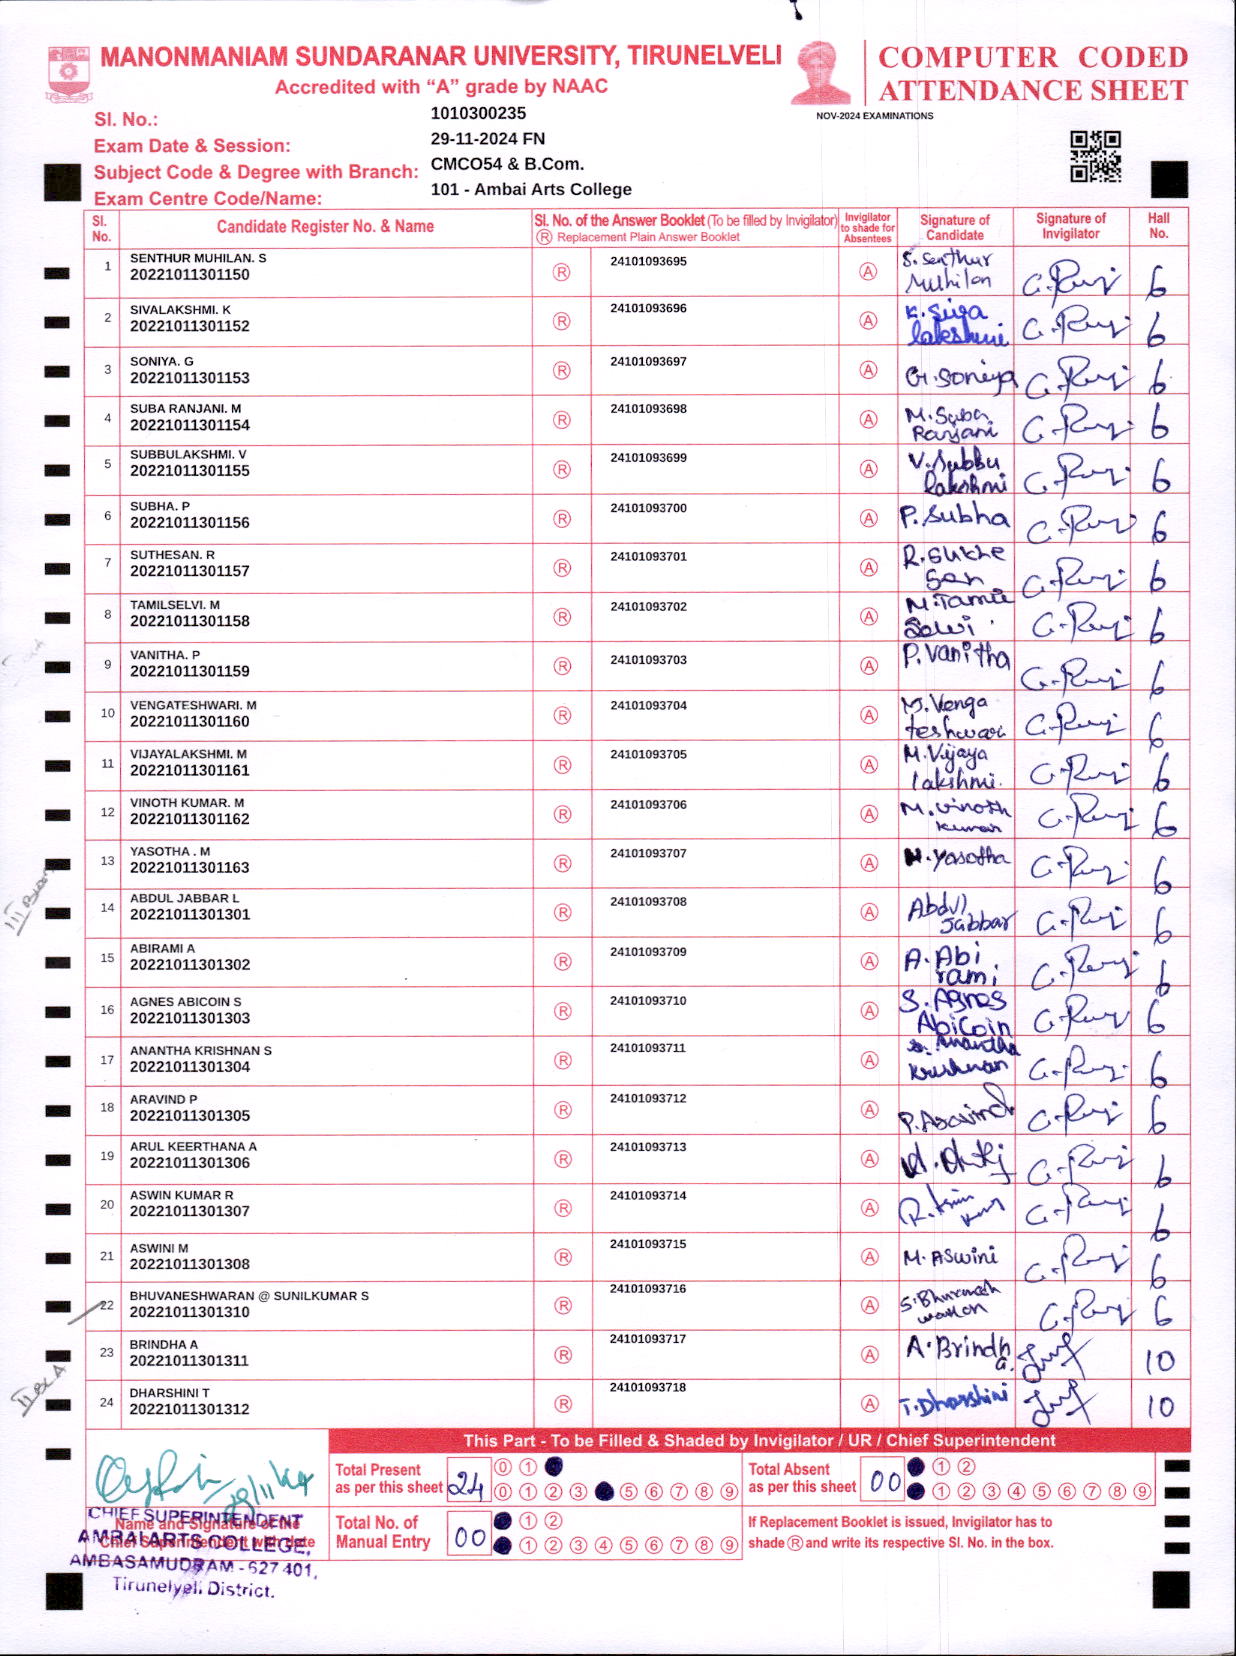 MANONMANIAM SUNDARANAR UNIVERSITY, TIRUNELVELI
Accredited with “A” grade by NAAC
COMPUTER CODED
ATTENDANCE SHEET
NOV-2024 EXAMINATIONS
Sl. No.: 1010300235
Exam Date & Session: 29-11-2024 FN
Subject Code & Degree with Branch: CMCO54 & B.Com.
Exam Centre Code/Name: 101 - Ambai Arts College
Sl. No. Candidate Register No. & Name Sl. No. of the Answer Booklet (To be filled by Invigilator) Ⓡ Replacement Plain Answer Booklet Invigilator to shade for Absentees Signature of Candidate Signature of Invigilator Hall No.
1 SENTHUR MUHILAN. S 20221011301150 Ⓡ 24101093695 Ⓐ S. Senthur Muhilan 6
2 SIVALAKSHMI. K 20221011301152 Ⓡ 24101093696 Ⓐ K. Siva lakshmi 6
3 SONIYA. G 20221011301153 Ⓡ 24101093697 Ⓐ G. Soniya 6
4 SUBA RANJANI. M 20221011301154 Ⓡ 24101093698 Ⓐ M. Suba Ranjani 6
5 SUBBULAKSHMI. V 20221011301155 Ⓡ 24101093699 Ⓐ V. Subbu lakshmi 6
6 SUBHA. P 20221011301156 Ⓡ 24101093700 Ⓐ P. Subha 6
7 SUTHESAN. R 20221011301157 Ⓡ 24101093701 Ⓐ R. Suthe San 6
8 TAMILSELVI. M 20221011301158 Ⓡ 24101093702 Ⓐ M. Tamil Selvi 6
9 VANITHA. P 20221011301159 Ⓡ 24101093703 Ⓐ P. Vanitha 6
10 VENGATESHWARI. M 20221011301160 Ⓡ 24101093704 Ⓐ M. Venga teshwari 6
11 VIJAYALAKSHMI. M 20221011301161 Ⓡ 24101093705 Ⓐ M. Vijaya lakshmi. 6
12 VINOTH KUMAR. M 20221011301162 Ⓡ 24101093706 Ⓐ M. Vinoth Kumar 6
13 YASOTHA . M 20221011301163 Ⓡ 24101093707 Ⓐ M. Yasotha 6
14 ABDUL JABBAR L 20221011301301 Ⓡ 24101093708 Ⓐ Abdul Jabbar 6
15 ABIRAMI A 20221011301302 Ⓡ 24101093709 Ⓐ A. Abi rami 6
16 AGNES ABICOIN S 20221011301303 Ⓡ 24101093710 Ⓐ S. Agnes Abicoin 6
17 ANANTHA KRISHNAN S 20221011301304 Ⓡ 24101093711 Ⓐ S. Anantha Krishnan 6
18 ARAVIND P 20221011301305 Ⓡ 24101093712 Ⓐ P. Aravind 6
19 ARUL KEERTHANA A 20221011301306 Ⓡ 24101093713 Ⓐ 6
20 ASWIN KUMAR R 20221011301307 Ⓡ 24101093714 Ⓐ 6
21 ASWINI M 20221011301308 Ⓡ 24101093715 Ⓐ M. Aswini 6
22 BHUVANESHWARAN @ SUNILKUMAR S 20221011301310 Ⓡ 24101093716 Ⓐ 6
23 BRINDHA A 20221011301311 Ⓡ 24101093717 Ⓐ A. Brindha. 10
24 DHARSHINI T 20221011301312 Ⓡ 24101093718 Ⓐ T. Dharshini 10
This Part - To be Filled & Shaded by Invigilator / UR / Chief Superintendent
Total Present as per this sheet 24 0 1 0 1 2 3 5 6 7 8 9
Total Absent as per this sheet 00 1 2 1 2 3 4 5 6 7 8 9
Total No. of Manual Entry 00 1 2 1 2 3 4 5 6 7 8 9
If Replacement Booklet is issued, Invigilator has to
shade Ⓡ and write its respective Sl. No. in the box.
Name and Signature of the
Chief Superintendent with date
CHIEF SUPERINTENDENT
AMBAI ARTS COLLEGE,
AMBASAMUDRAM - 627 401,
Tirunelveli District.